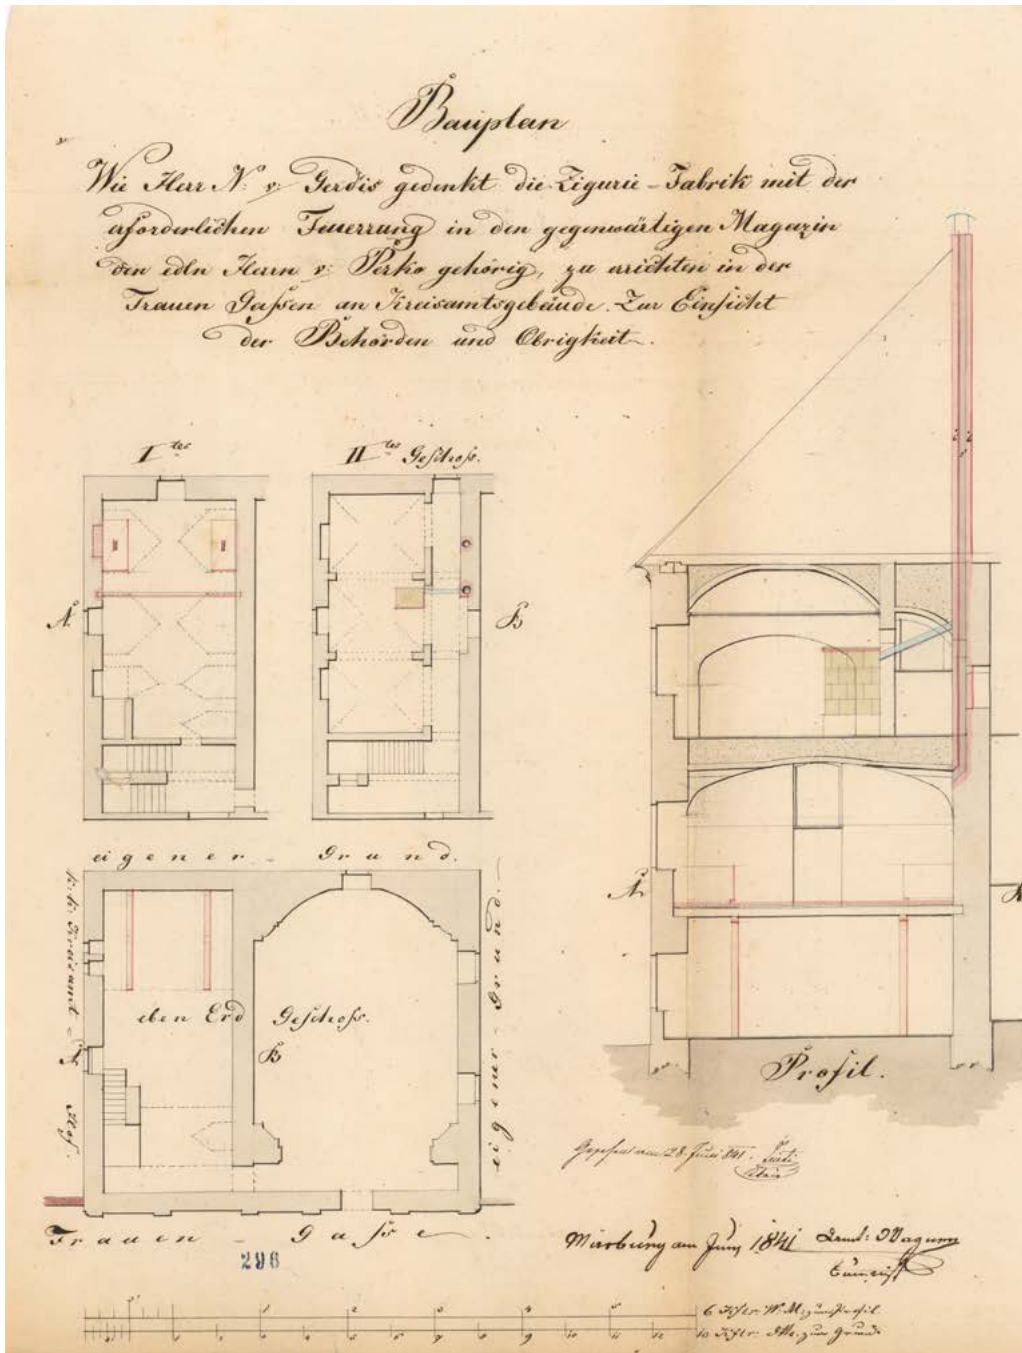 Bauplan
Wie Herr N. v. Gerdis gedenkt die Zigurie-Fabrik mit der
erforderlichen Feuerrung in den gegenwärtigen Magazin
den edln Herrn v. Perko gehörig, zu errichten in der
Frauen Gaßen an Kreisamtsgebäude. Zur Einsicht
der Behörden und Obrigkeit.
I tes
II tes Geschoß.
A.
B
eigener Grund.
k: k: Kreisamt
Hof.
A
eben Erd Geschoß.
B
eigener Grund.
Frauen Gaße.
296
A.
Profil.
Gesehen am 28 Juni 841.
Marburg am Juny 1841
6 Kftr: W. M. zum Profil
10 Kftr: zum Grund